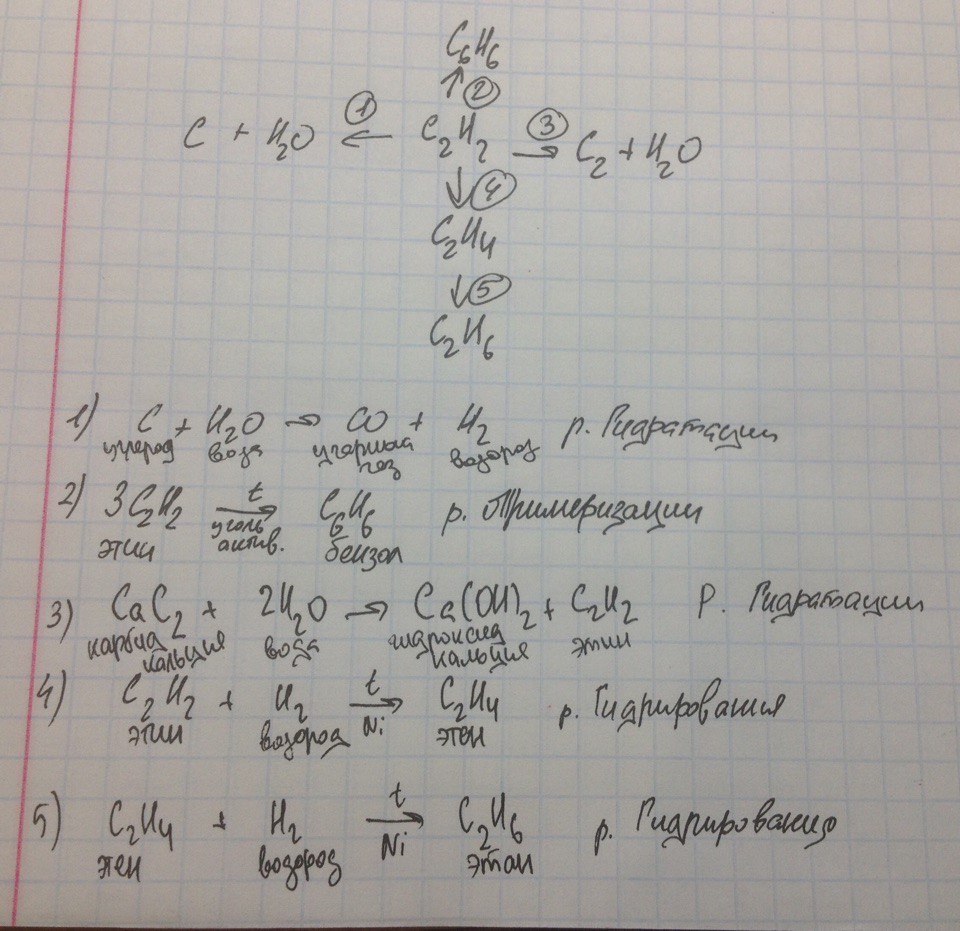 C₆H₆
↑ ②
C + H₂O ← ① C₂H₂ ③ → C₂ + H₂O
↓ ④
C₂H₄
↓ ⑤
C₂H₆
1) C + H₂O → CO + H₂ р. Гидратации
углерод вода угарный газ водород
2) 3C₂H₂ t → C₆H₆ р. Тримеризации
этин уголь актив. бензол
3) CaC₂ + 2H₂O → Ca(OH)₂ + C₂H₂ Р. Гидратации
карбид кальция вода гидроксид кальция этин
4) C₂H₂ + H₂ t → Ni C₂H₄ р. Гидрирования
этин водород этен
5) C₂H₄ + H₂ t → Ni C₂H₆ р. Гидрирования
этен водород этан